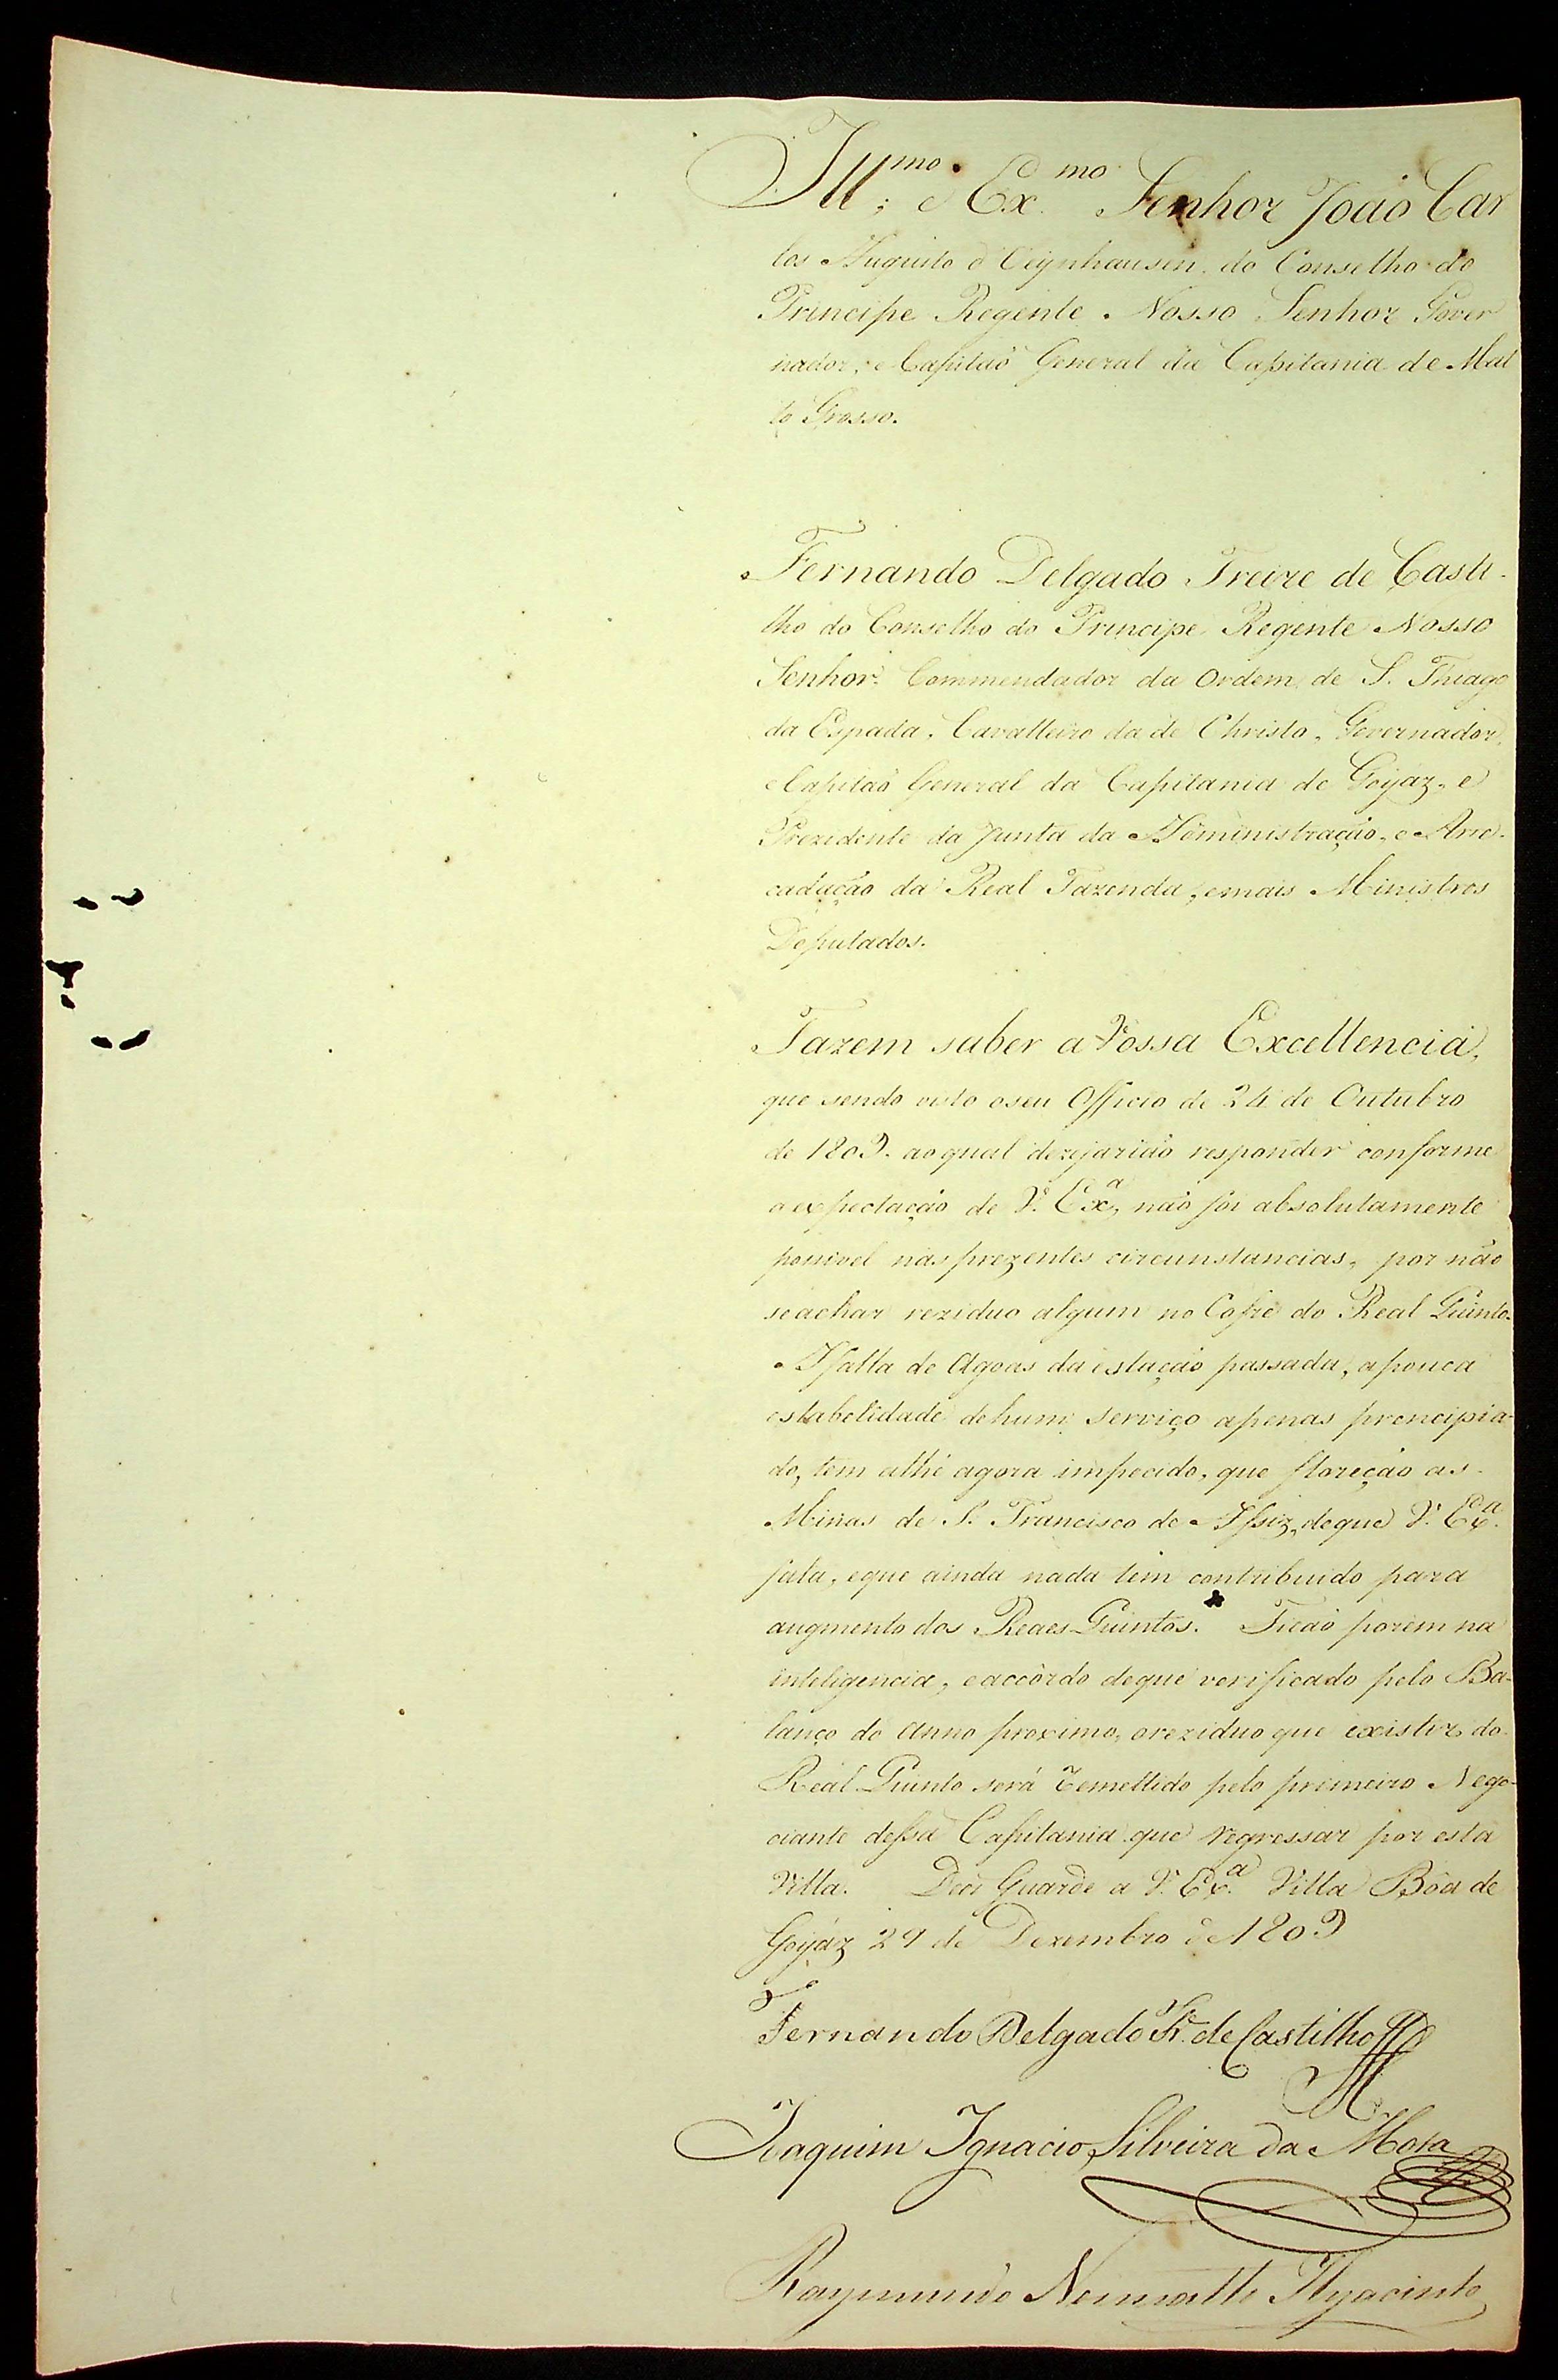 Ill.mo e Ex.mo Senhor João Car
los Augusto d'Oeynhausen, do Conselho do
Principe Regente Nosso Senhor Gover
nador, e Capitaõ General da Capitania de Mat
to Grosso.
Fernando Delgado Freire de Casti-
lho do Conselho do Principe Regente Nosso
Senhor. Commendador da Ordem de S. Thiago
da Espada, Cavalleiro da de Christo, Governador,
e Capitaõ General da Capitania de Goyáz, e
Prezidente da Junta da Administração, e Arre-
cadação da Real Fazenda, emais Ministros
Deputados.
Fazem saber a Vossa Excellencia,
que sendo visto oseu Officio de 24 de Outubro
de 1809. aoqual dezejarião responder conforme
a expectação de V. Exa, não foi absolutamente
possivel nas prezentes circunstancias, por não
seachar reziduo algum no Cofre do Real Quinto.
Afalta de Agoas da estação passada, apouca
estabelidade dehum serviço apenas prencipia-
do, tem athé agora impecido, que floreção as
Minas de S. Francisco de Assiz, deque V. Exa.
fala, eque ainda nada tem contribuido para
augmento dos Reaes Quintos. Ficaõ porem na
inteligencia, eaccôrdo deque verificado pelo Ba-
lanço do Anno proximo, oreziduo que existir do
Real Quinto será remettido pelo primeiro Nego-
ciante dessa Capitania que regressar por esta
Villa. Deos Guarde a V. Exa. Villa Bôa de
Goyáz 29 de Dezembro de 1809
Fernando Delgado Fr.e de Castilho
Joaquim Ignacio Silveira da Mota
Raymundo Nonnatto Hyacinto